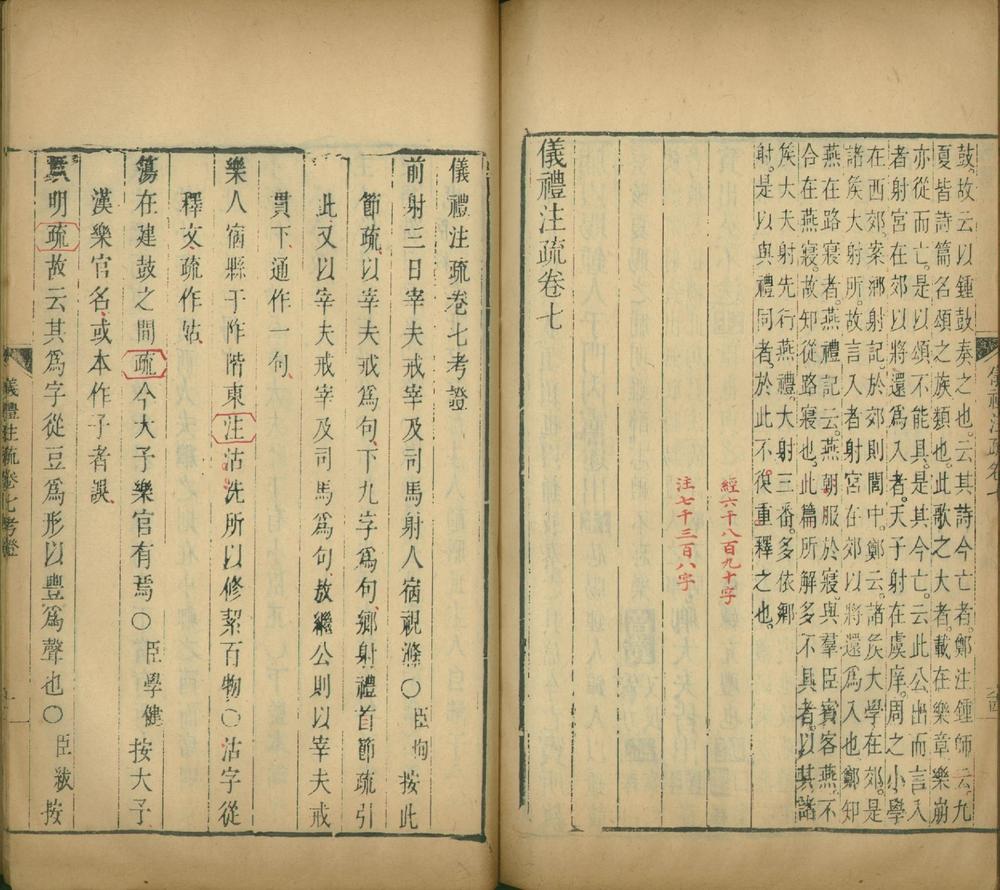 鼓。故云以鍾鼓奏之也。云其詩今亡者。鄭注鍾師云。九
夏皆詩篇名頌之族類也。此歌之大者。載在樂章樂崩
亦從而亡。是以頌不能具。是其今亡。云此公出而言入
者射宮在郊以將還爲入者。天子射在虞庠。周之小學
在西郊。案鄉射記。於郊則閭中。鄭云。諸矦大學在郊。是
諸矦大射所。故言入者射宮在郊以將還爲入也鄭知
燕在路寢者。燕禮記云。燕朝服於寢與羣臣賓客燕不
合在燕寢。故知從路寢也。此篇所解多不具者。以其諸
矦大夫射先行燕禮。大射三番。多依鄉
射。是以與禮同者。於此不復重釋之也。
經六千八百九十字
注七千三百八字
儀禮注疏卷七
儀禮注疏卷七
儀禮注疏卷七考證
前射三日宰夫戒宰及司馬射人宿視滌〇臣恂按此
節疏以宰夫戒爲句下九字爲句鄉射禮首節疏引
此又以宰夫戒宰及司馬爲句敖繼公則以宰夫戒
貫下通作一句
樂人宿縣于阼階東注沽洗所以修絜百物〇沽字從
釋文疏作姑
簜在建鼓之間疏今大予樂官有焉〇臣學健按大予
漢樂官名或本作子者誤
明疏故云其爲字從豆爲形以豐爲聲也〇臣紱按
儀禮注疏卷七考證